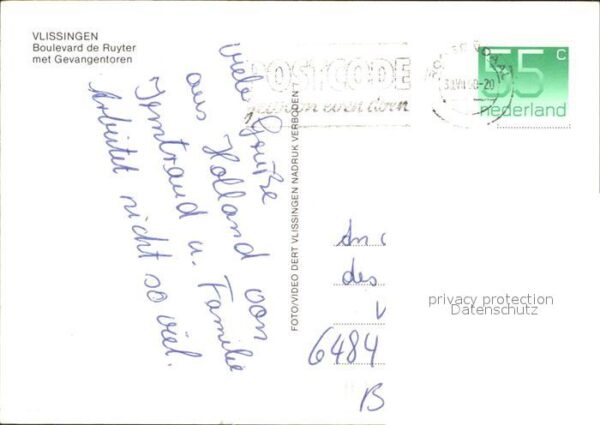 VLISSINGEN
Boulevard de Ruyter
met Gevangentoren
POSTCODE
gewoon even doen
55 c
nederland
viele Grüße
aus Holland von
Irmtraud u. Familie
Arbeitet nicht so viel.
FOTO/VIDEO DERT VLISSINGEN NADRUK VERBODEN
An
des
6484
B
privacy protection
Datenschutz